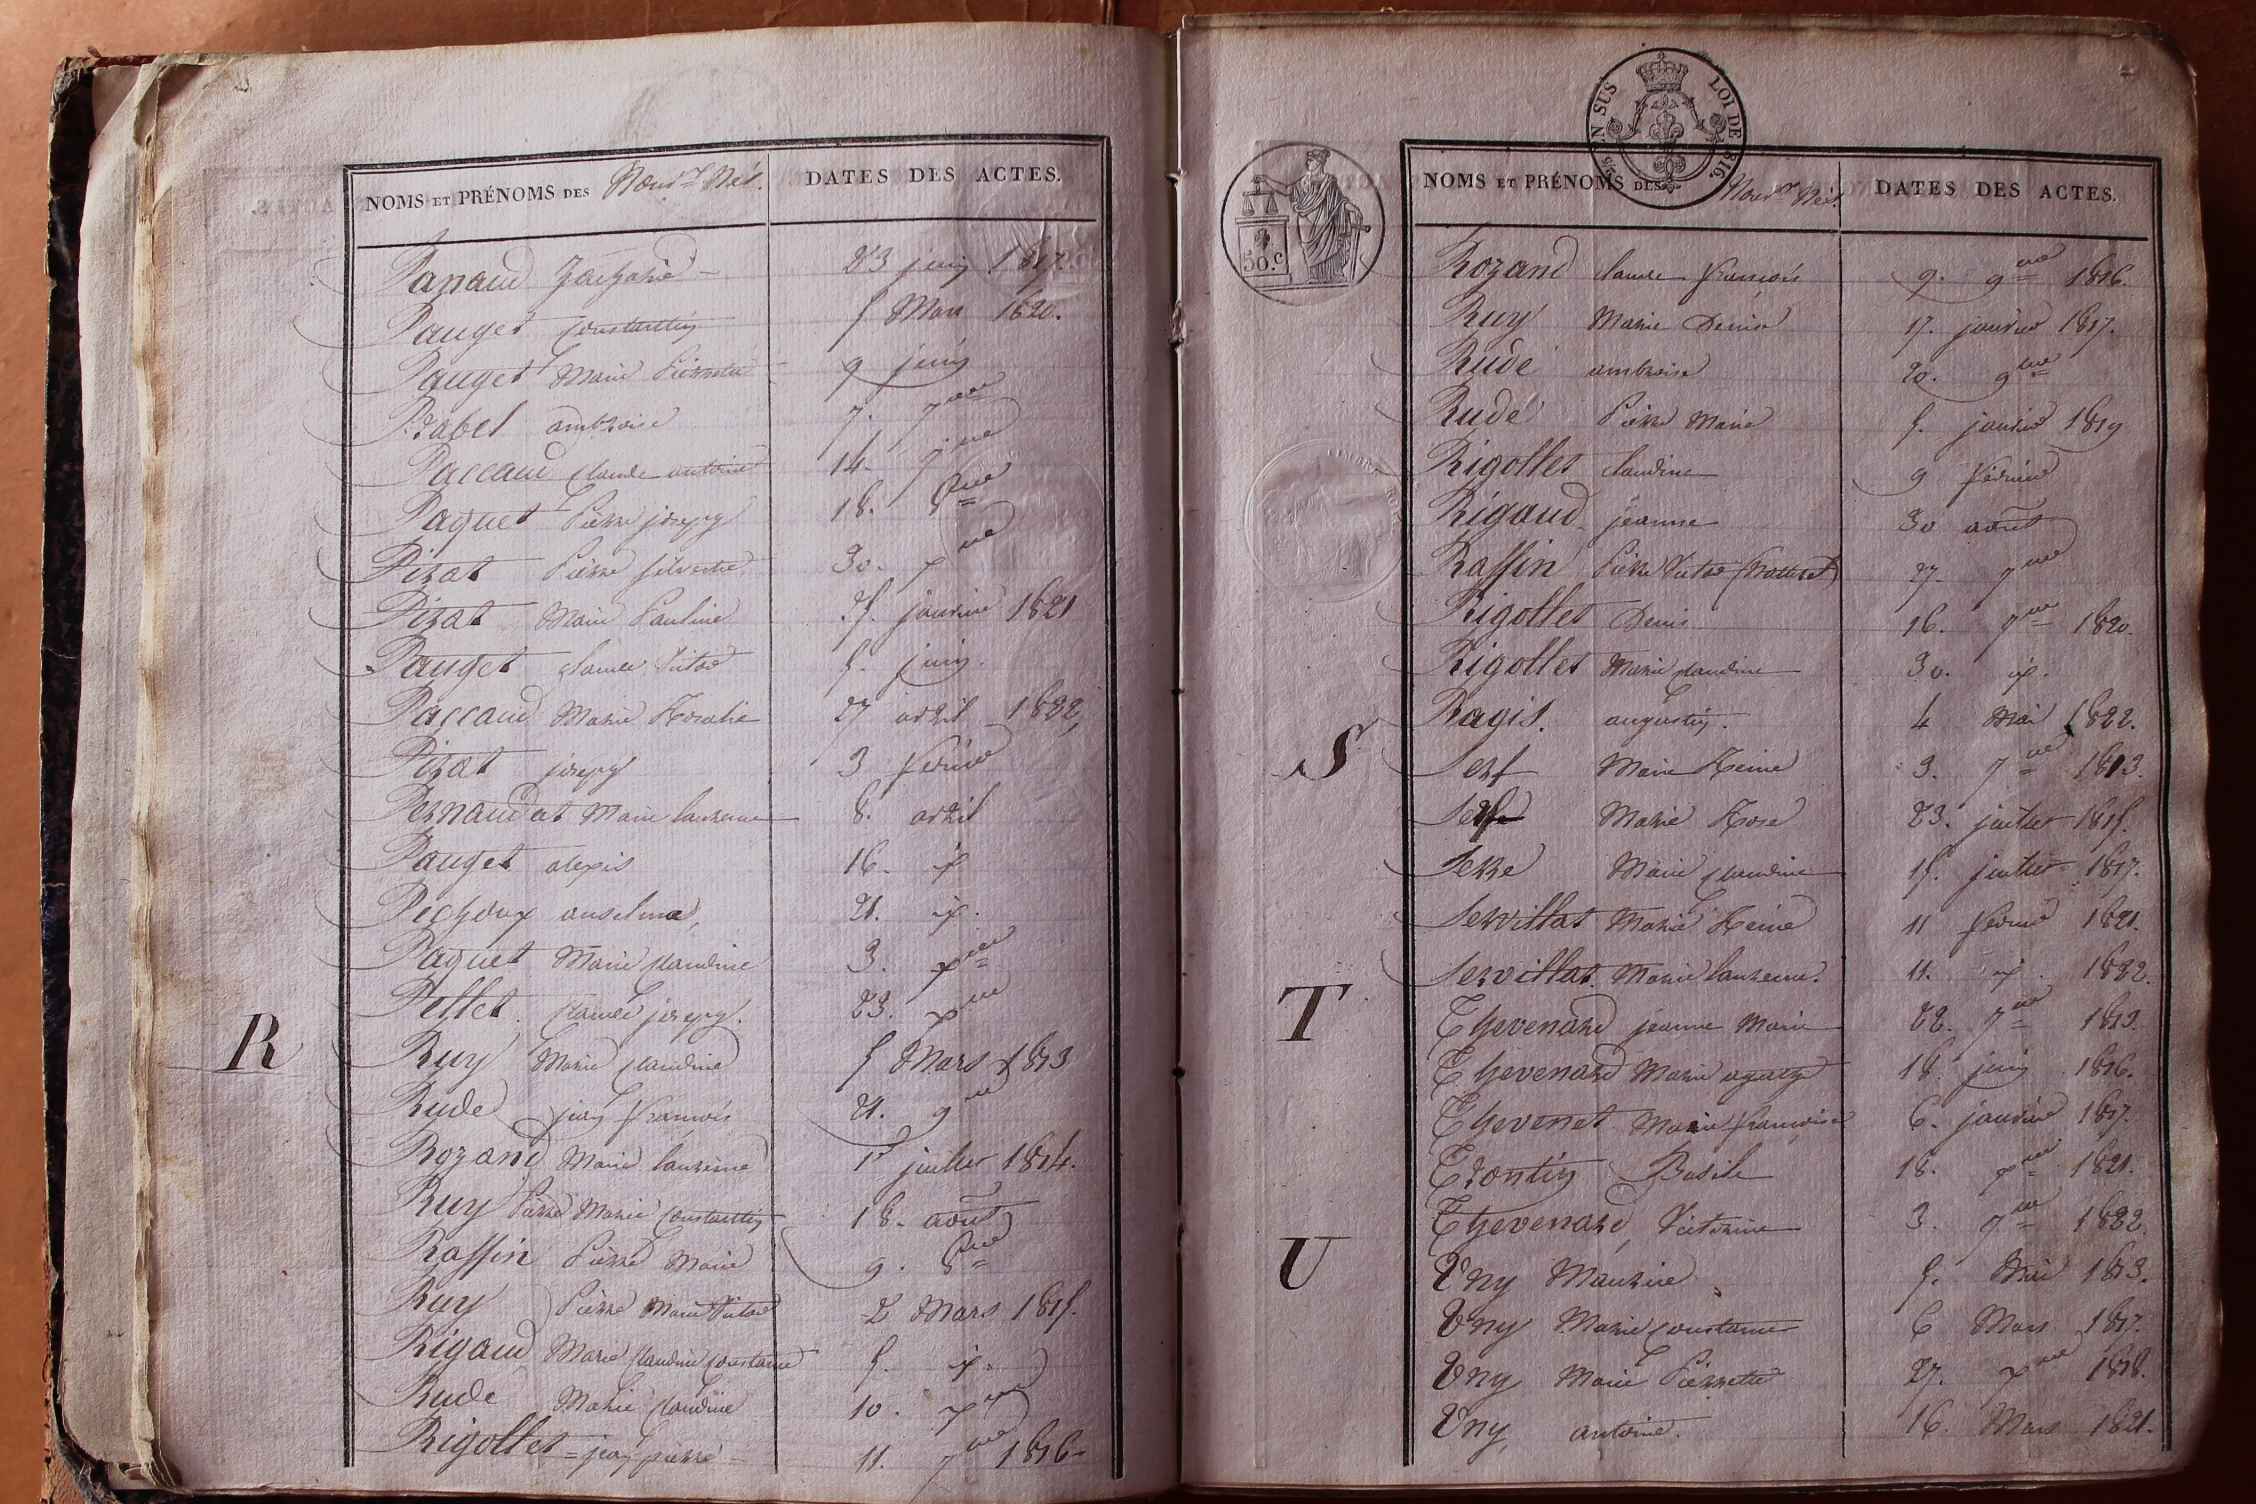 NOMS ET PRÉNOMS DES Nouv. Nés. DATES DES ACTES.
Panaud 23 juin 1817.
Pauget Constantin 5 Mars 1820.
Pauget Marie Pierrette 9 juin
Prabel ambroise 7. 7bre
Paccaud Claude antoine 14. 7bre
Paquet Pierre joseph 18. 8bre
Pirat Pierre Silvestre 30. xbre
Pirat Marie Pauline 25. janvier 1821
Pauget Claude Victor 5. juin.
Paccaud Marie Rosalie 27 avril 1822,
Pirat joseph 3 février
Pernaudat Marie 8. avril
Pauget alexis 16. id
Pechoux anselme, 21. id.
Paquet Marie Claudine 3. xbre
Pellet. Claude joseph. 23. xbre
R
Ruy Marie Claudine 5 Mars 1813
Rude jean françois 21. 9bre
Rozand Marie 1er juillet 1814.
Ruy Pierre Marie Constantin 18. août
Raffin Pierre Marie 9. 8bre
Ruy Pierre Marie Victor 2 Mars 1815.
Rigaud Marie Claudine Constance 5. id.
Rude Marie Claudine 10. xbre
Rigollet jean pierre 11. 7bre 1816
50.C
EN SUS LOI DE 1816
NOMS ET PRÉNOMS DES Nouv. Nés. DATES DES ACTES.
Rozand Claude françois 9. 9bre 1816.
Ruy Marie Denise 17. janvier 1817.
Rude ambroise 20. 9bre
Rude Pierre Marie 5. janvier 1819
Rigollet Claudine 9 février
Rigaud jeanne 30 août
Raffin Pierre Victor 27. 7bre
Rigollet Denis 16. 7bre 1820.
Rigollet Marie Claudine 30. id.
Ragis. augustin. 4 Mai 1822.
S
Serf Marie Reine 3. 7bre 1813.
Marie Rose 23. juillet 1815.
Serre Marie Claudine 15. juillet 1817.
Servillat Marie Reine 11 février 1821.
Servillat. Marie 11. id. 1822.
T
Thevenard jeanne Marie 22. 7bre 1813.
Thevenard Marie agathe 18 juin 1816.
Thevenet Marie françoise 6. janvier 1817.
Trontin Basile 18. xbre 1821.
Thevenard, Victorine 3. 7bre 1822.
U
Uny Maurice 5. Mai 1813.
Uny Marie Constance 6 Mars 1817.
Uny Marie Pierrette 27. xbre 1818.
Uny antoine. 16. Mars 1821.